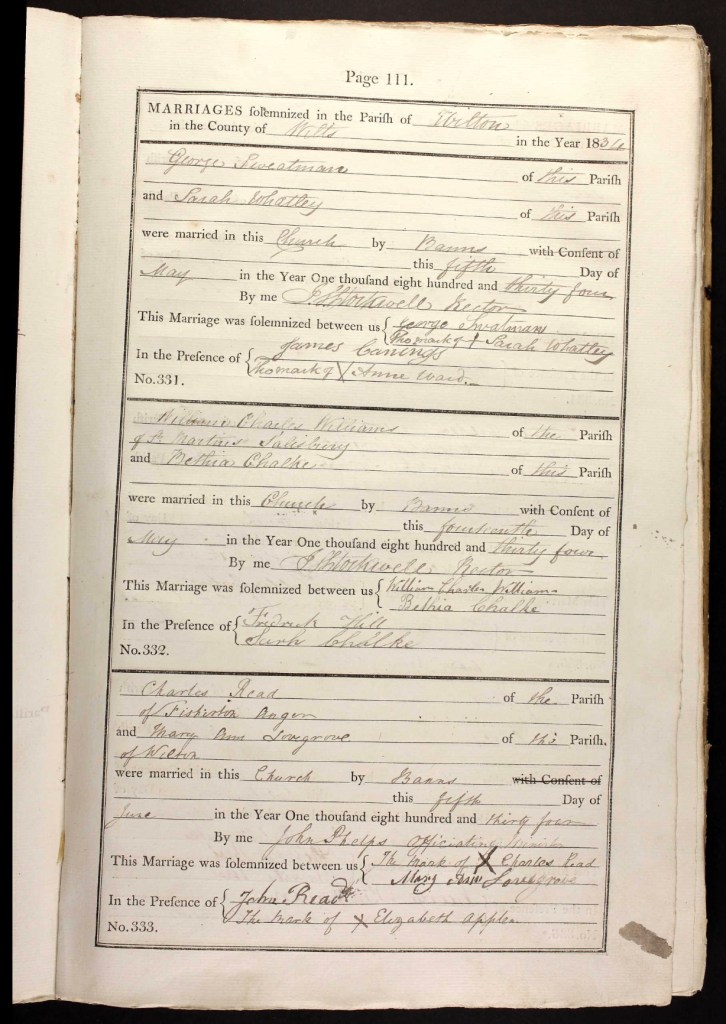 Page 111.
MARRIAGES solemnized in the Parish of Wilton
in the County of Wilts in the Year 1834
George Sweatman of this Parish
and Sarah Whatley of this Parish
were married in this Church by Banns with Consent of
this fifth Day of
May in the Year One thousand eight hundred and thirty four
By me J Stockwell Rector
This Marriage was solemnized between us { George Swatman
The mark of X Sarah Whatley
In the Presence of { James Canings
The mark of X Anne Ward
No. 331.
William Charles Williams of the Parish
of St Martins Salisbury
and Bethia Chalke of this Parish
were married in this Church by Banns with Consent of
this fourteenth Day of
May in the Year One thousand eight hundred and thirty four
By me J Stockwell Rector
This Marriage was solemnized between us { William Charles Williams
Bethia Chalke
In the Presence of { Fredrick Hill
Sarh Chalke
No. 332.
Charles Read of the Parish
of Fisherton Anger
and Mary Ann Lovegrove of this Parish,
of Wilton
were married in this Church by Banns with Consent of
this fifth Day of
June in the Year One thousand eight hundred and thirty four
By me John Phelps Officiating Minister
This Marriage was solemnized between us { The mark of X Charles Read
Mary Ann Lovegrove
In the Presence of { John Read
The mark of X Elizabeth
No. 333.